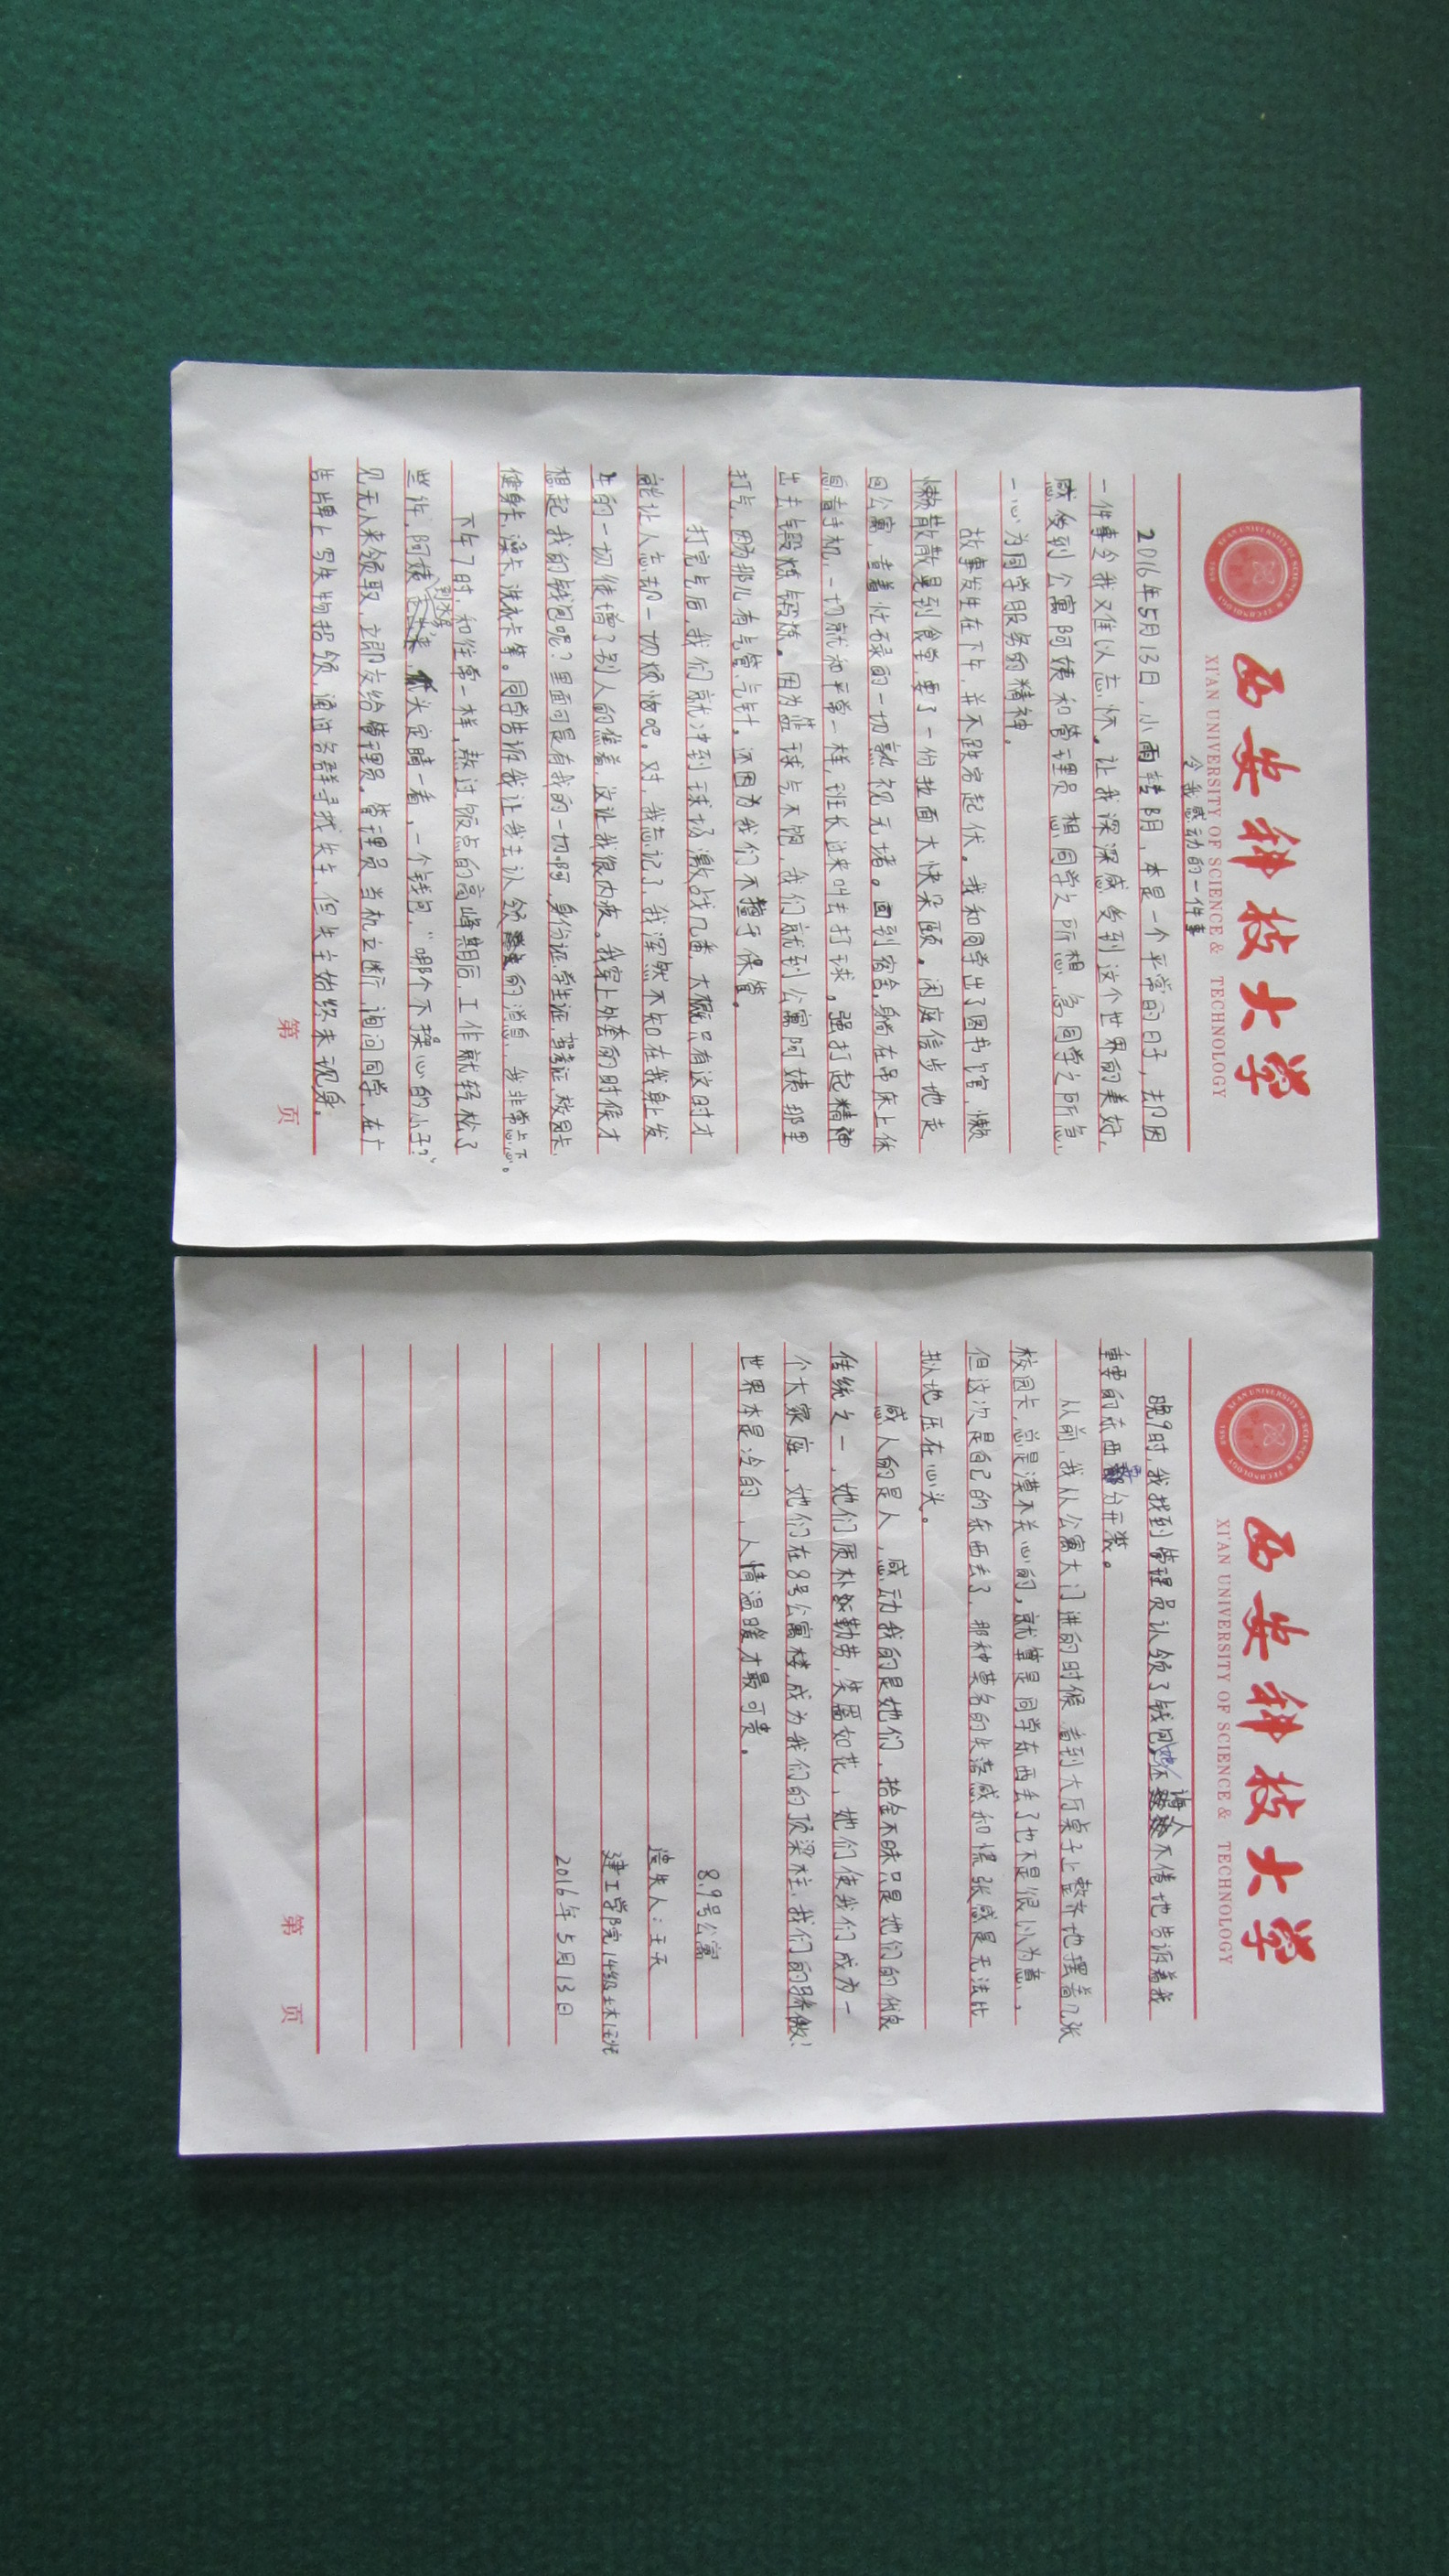 西安科技大学
XI'AN UNIVERSITY OF SCIENCE & TECHNOLOGY
令我感动的一件事
2016年5月13日,小雨转阴,本是一个平常的日子,却因
一件事令我难以忘怀。让我深深感受到这个世界的美好,
感受到公寓阿姨和管理员想同学之所想,急同学之所急,
一心为同学服务的精神。
故事发生在下午,并不跌宕起伏。我和同学出了图书馆,懒
懒散散晃到食堂,要了一份拉面大快朵颐。闲庭信步地走
回公寓,忙碌的一切熟视无堵。回到宿舍,躺在吊床上休
息看手机,一切就和平常一样,班长过来叫去打球。强打起精神
出去锻炼锻炼。因为篮球气不饱,我们就到公寓阿姨那里
打气,因为那儿有气管、气针。还因为我们不擅于保管。
打完气后,我们就冲到球场激战几番,大概只有这时才
能让人忘却一切烦恼吧。对,我忘记了,我浑然不知在我身上发
生的一切徒增了别人的焦着,这让我很内疚。我穿上外套的时候才
想起我的钱包呢?里面可是有我的一切啊,身份证、学生证、驾驶证、校园卡、
健身卡、澡卡、洗衣卡等。同学告诉我让失主认领的消息,我非常忐忑。
下午7时,和往常一样,熬过饭点的高峰期后,工作就轻松了
些许,阿姨到水房,低头定睛一看,一个钱包,“哪个不操心的小子?”
见无人来领取,立即交给管理员。管理员当机立断,询问同学,在广
告牌上写失物招领,通过各群寻找失主,但失主始终未现身。
第 页
西安科技大学
XI'AN UNIVERSITY OF SCIENCE & TECHNOLOGY
晚9时,我找到管理员认领了钱包,她还诲人不倦地告诉着我
重要的东西需分开装。
从前,我从公寓大门进的时候,看到大厅桌子上整齐地摆着几张
校园卡,总是漠不关心的,就算是同学东西丢了也不是很以为意,
但这次是自己的东西丢了,那种莫名的失落感和慌张感是无法比
拟地压在心头。
感人的是人,感动我的是她们,拾金不昧只是她们的优良
传统之一,她们质朴勤劳,笑靥如花,她们使我们成为一
个大家庭,她们在8号公寓楼成为我们的顶梁柱,我们的骄傲!
世界本是冷的,人情温暖才最可贵。
8.9号公寓
遗失人:王
建工学院14级土木
2016年5月13日
第 页